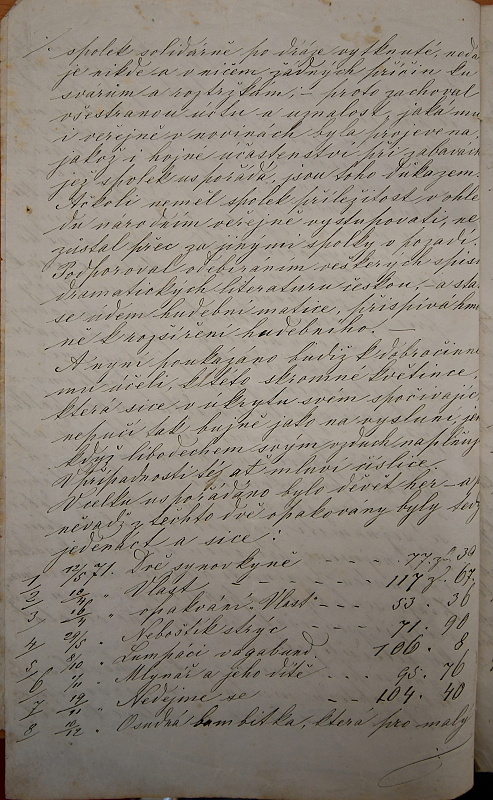 spolek solidárně po dráze vytknuté, nedá
je nikde a v ničem žádných příčin ku
svarům a roztržkám; – proto zachoval
všestrannou úctu a uznalost, jaká mu
i veřejně v novinách byla projevena,
jakož i hojné účastenství při zábavách
jež spolek uspořádá, jsou toho důkazem.
Ačkoli neměl spolek příležitost v ohle
du národním veřejně vystupovati, ne
zůstal přec za jinými spolky v pozadí.
Podporoval odebíráním veškerých spisů
dramatických literaturu českou, – a stav
se údem hudební matice, přispívá hmot
ně k rozšíření hudebního. –
A nyní poukázáno budiž k dobročinné
mu účeli, k této skromné květince,
která sice v úkrytu svém spočívajíc
nepučí tak bujně jako na výsluní,
když libodechem svým vzduch naplňuje
V případnosti té ať mluví číslice.
V celku uspořádáno bylo devět her – a
nevadž z těchto dvě opakovány byly tedy
jedenáct a sice:
1 12/5 71. Dvě synovkyně - - - - 77 zl. 30
2 " Vlast - - - - 117 zl. 67.
3 " opakování "Vlast" - - - 53. 36
4 29/5 " Nebožtík strýc - - - 71. 90
5 8/10 " Lumpáci vagabund. 106. 8
6 " Mlynář a jeho dítě . . . 95. 76
7 " Nedejme se - - - - 104. 40
8 " Osudná bambitka, která pro malý